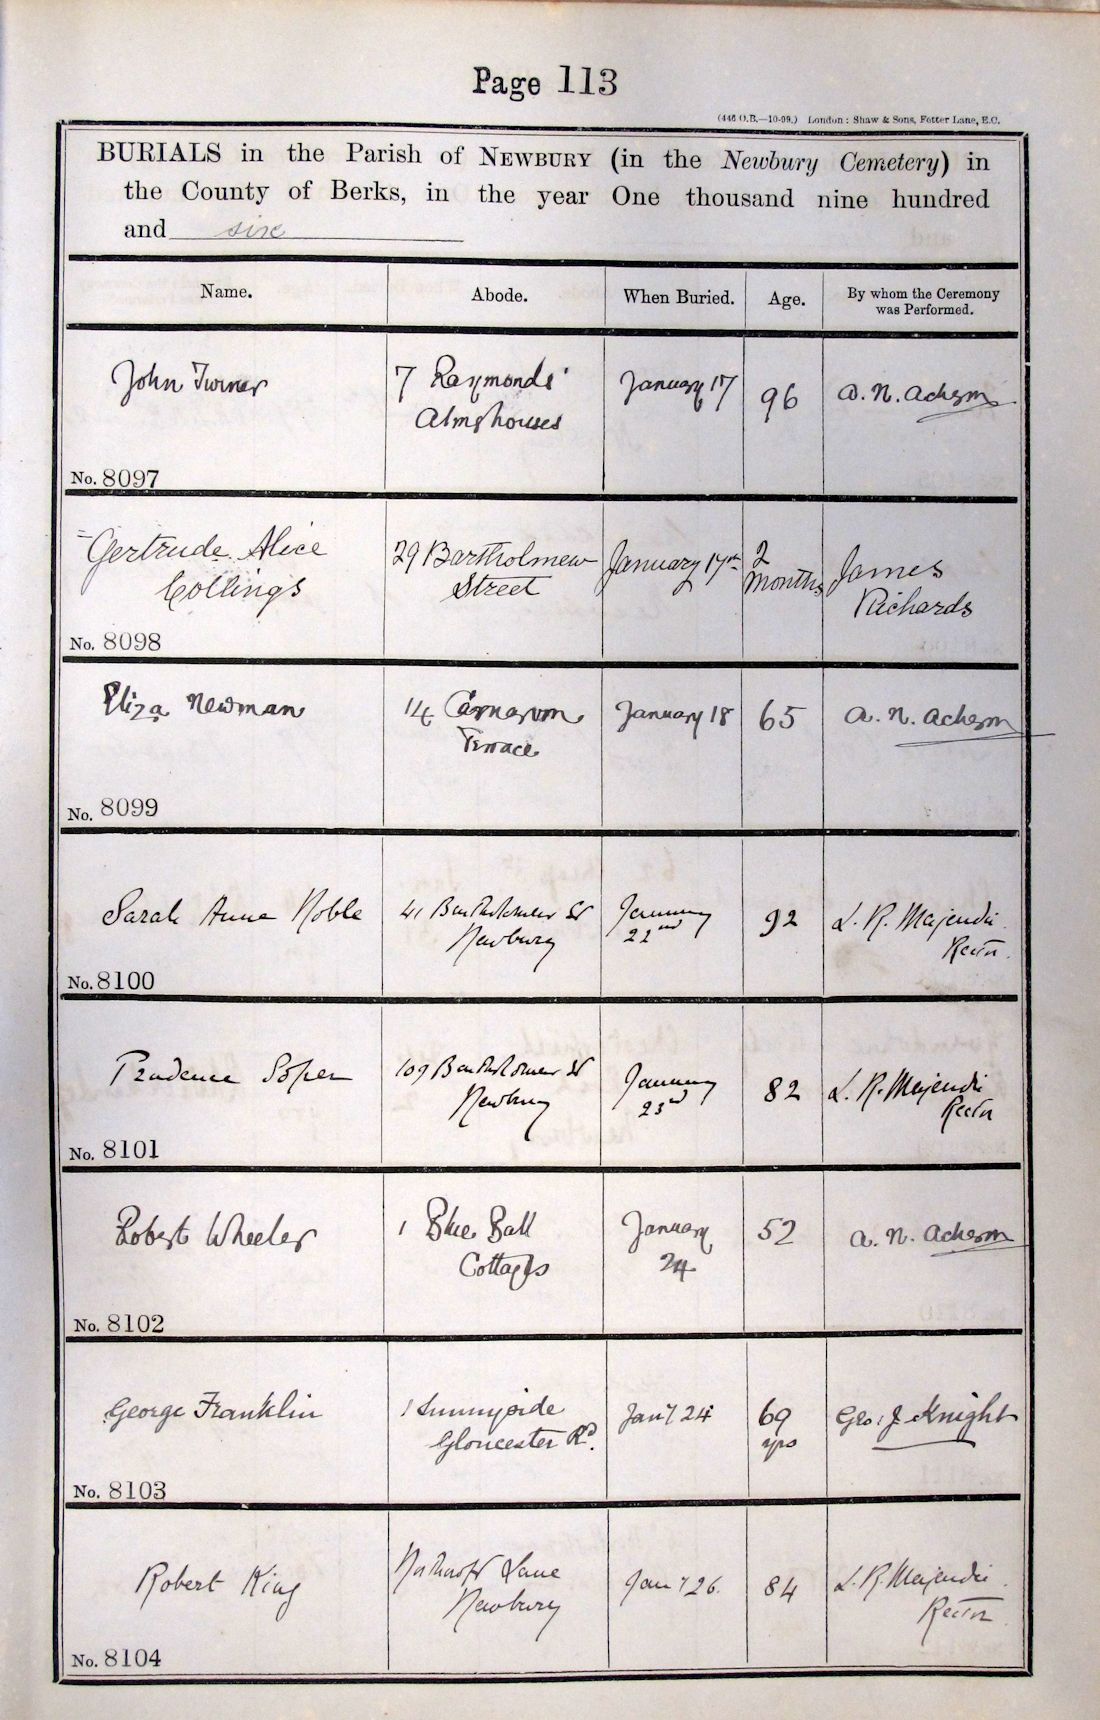 Page 113
(446 O.B.—10-99.) London: Shaw & Sons, Fetter Lane, E.C.
BURIALS in the Parish of NEWBURY (in the Newbury Cemetery) in
the County of Berks, in the year One thousand nine hundred
and six
Name. Abode. When Buried. Age. By whom the Ceremony
was Performed.
John Turner 7 Raymonds' January 17 96 A. N. Acheson
Almshouses
No. 8097
Gertrude Alice 29 Bartholmew January 17th 2 James
Collings Street Months Richards
No. 8098
Eliza Newman 14 Carnarvon January 18 65 A. N. Acheson
Terrace
No. 8099
Sarah Anne Noble 41 Bartholomew St January 92 L. R. Majendie
Newbury 22nd Rector.
No. 8100
Prudence Soper 109 Bartholomew St January 82 L. R. Majendie
Newbury 23rd Rector
No. 8101
Robert Wheeler 1 Blue Ball January 52 A. N. Acheson
Cottages 24
No. 8102
George Franklin 1 Sunnyside Jany 24 69 Geo: J Knight
Gloucester Rd. yrs
No. 8103
Robert King Northcroft Lane Jany 26. 84 L. R. Majendie
Newbury Rector
No. 8104